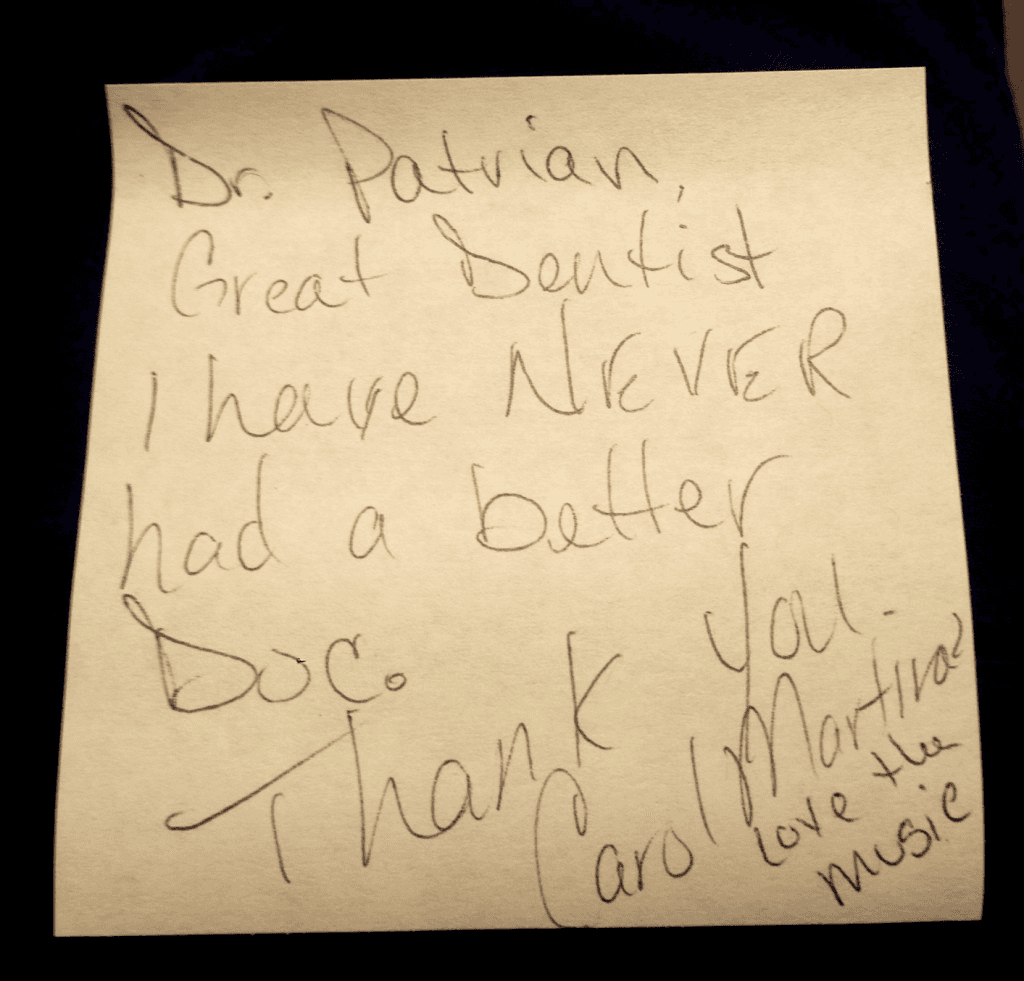 Dr. Patrian,
Great Dentist
I have NEVER
had a better
Doc.
Thank you.
Carol
love the
music